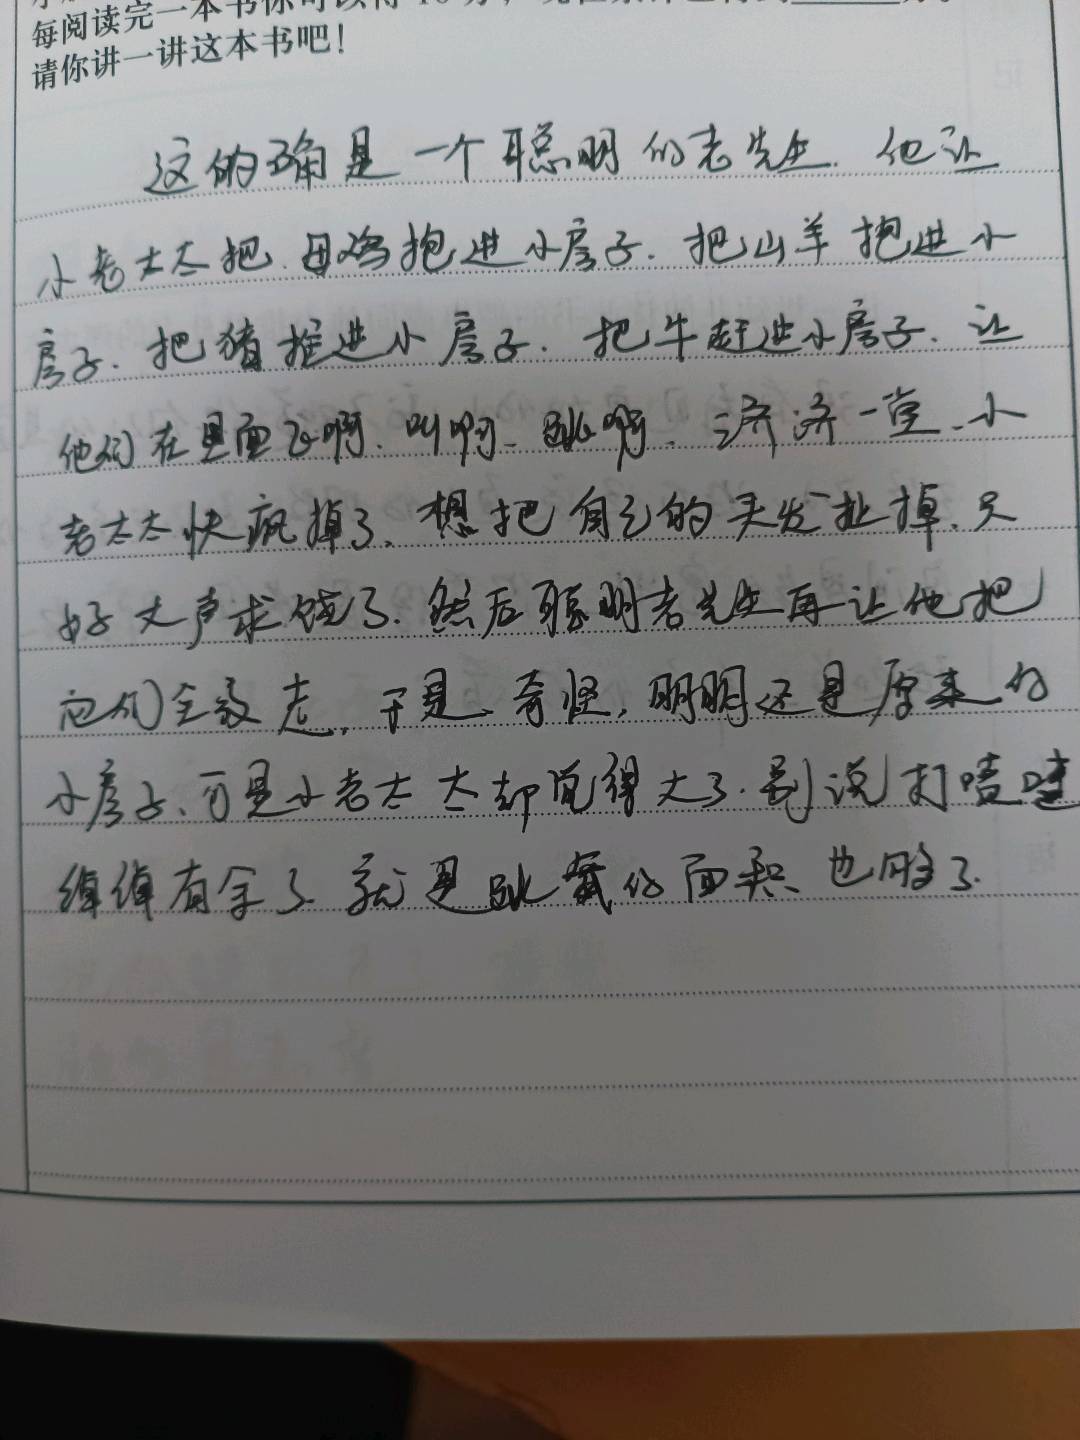 每阅读完一本书你可以得10分，现在累计已得到______分。
请你讲一讲这本书吧！
这的确是一个聪明的老先生.他让
小老太太把.母鸡抱进小房子.把山羊抱进小
房子.把猪推进小房子.把牛赶进小房子.让
他们在里面飞啊.叫啊.跳啊.济济一堂.小
老太太快疯掉了.想把自己的头发扯掉.只
好大声求饶了.然后聪明老先生再让他把
它们全放走.于是,奇怪,明明还是原来的
小房子.可是小老太太却觉得大了.别说打嗑
绰绰有余了.就是跳舞的面积也够了.